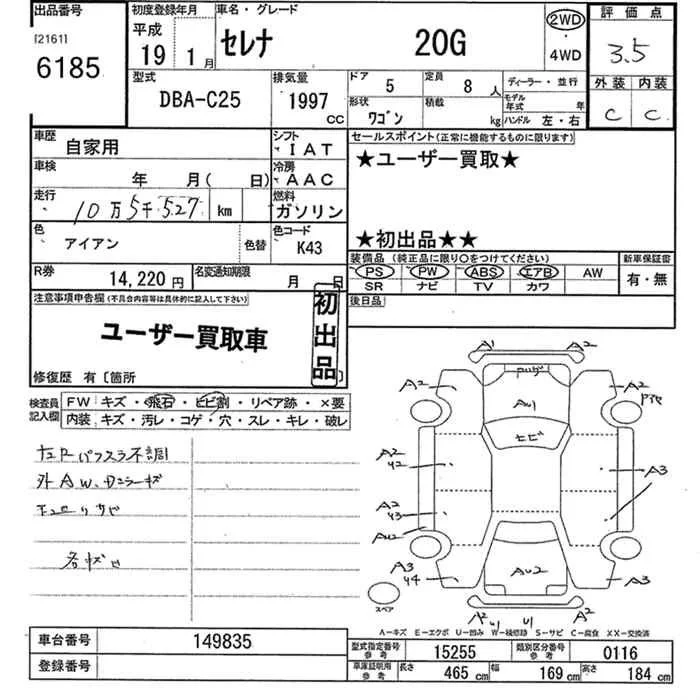 出品番号 初度登録年月 車名・グレード 評価点
[2161] 平成 セレナ 20G 2WD 3.5
6185 19年 1月 ・4WD
型式 排気量 ドア 5 定員 8人 ディーラー・並行 外装 内装
DBA-C25 1997 CC 形状 ワゴン 積載 kg モデル年式 年 C C
ハンドル 左・右
車歴 自家用 シフト IAT セールスポイント(正常に機能するものに限ります)
車検 年 月( 日) 冷房 AAC ★ユーザー買取★
走行 10万5千527 km 燃料 ガソリン
色 アイアン 色替 色コード K43 ★初出品★★
装備品 (純正品に限り○をつけてください) 新車保証書
R券 14,220円 名変通知期限 月 日 PS PW ABS エアB AW 有・無
SR ナビ TV カワ
注意事項申告欄(不具合内容等は具体的に記入して下さい) 初出品 後日品
ユーザー買取車
修復歴 有〔箇所 〕
検査員記入欄 FW キズ・飛石・ヒビ割・リペア跡・×要
内装 キズ・汚レ・コゲ・穴・スレ・キレ・破レ
A1 A2
A2 A2
AU1
ヒビ
A2
U2 A3
A2
U3
AU2
A3
U4 AU2 A3
スペア A2 U1 U1 A2
外AW、ドアミラーキズ
A-キズ E-エクボ U-凹み W-補修跡 S-サビ C-腐食 XX-交換済
車台番号 149835 型式指定番号 参考 15255 類別区分番号 参考 0116
登録番号 車庫証明用 参考 長さ 465 cm 幅 169 cm 高さ 184 cm